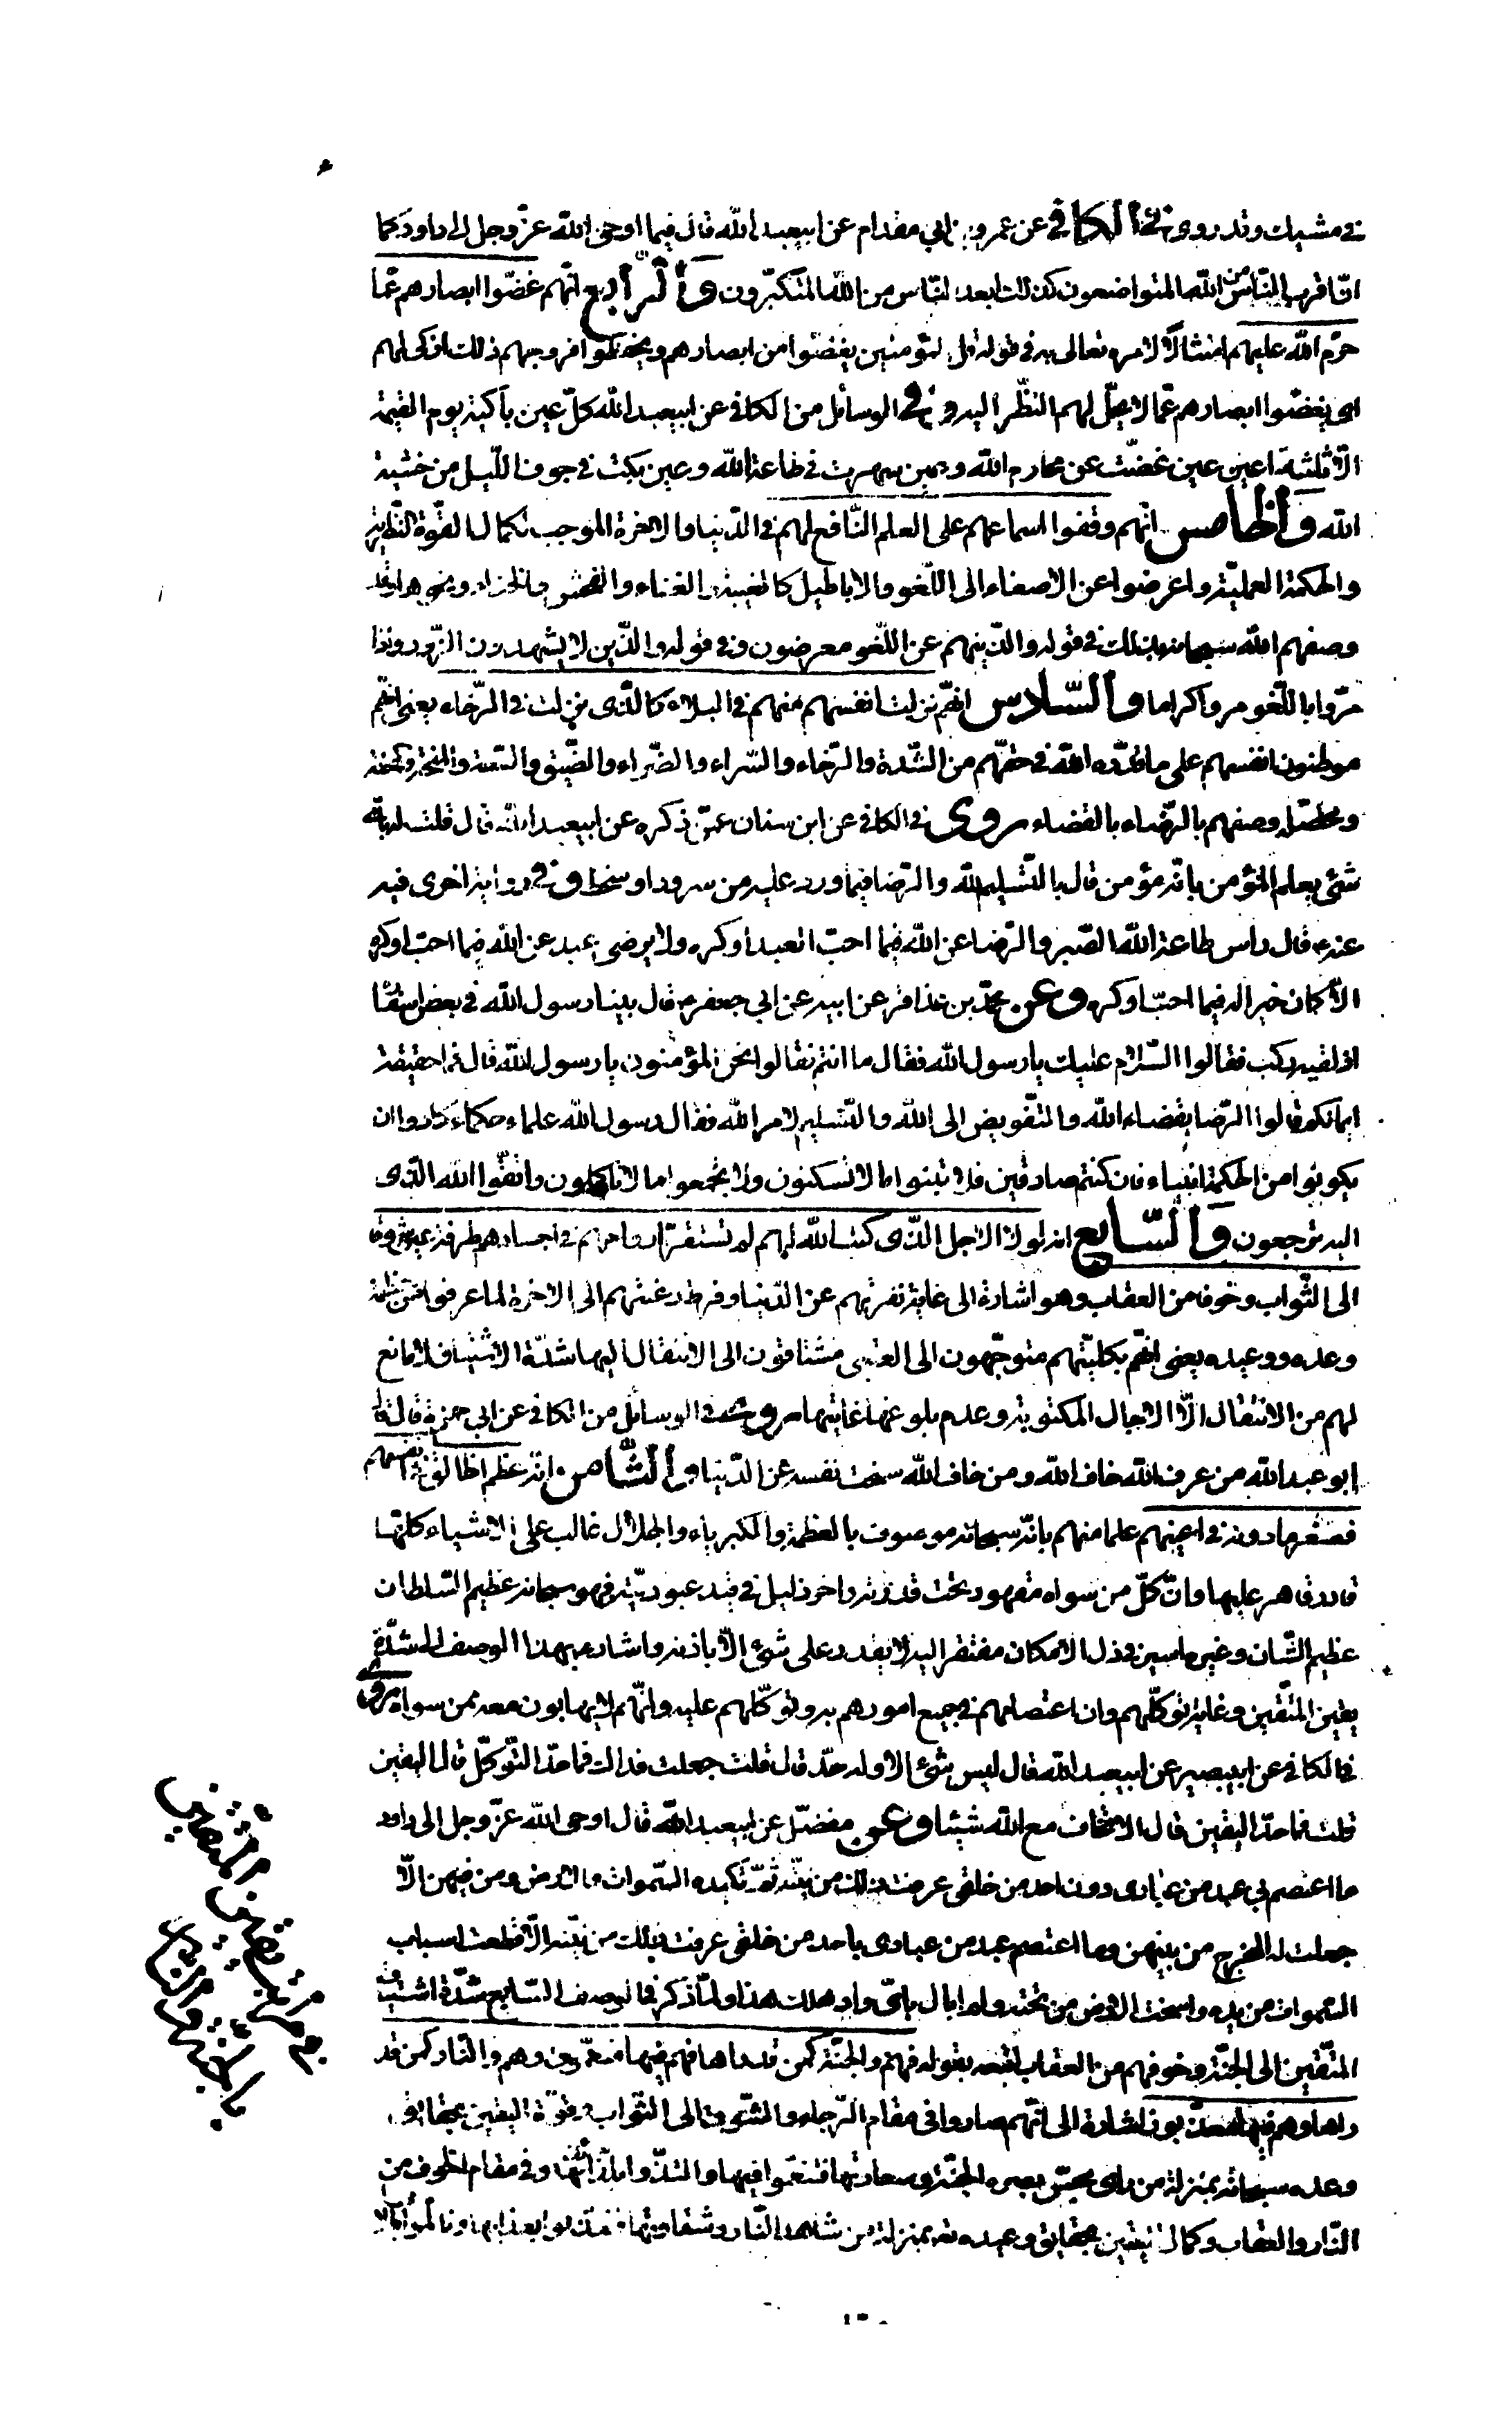 في مشيك وقد روى في الكافي عن عمرو بن ابي مقدام عن ابيعبد الله قال فيما اوحى الله عزّ وجل الى داود كما
انّ اقرب النّاس من الله المتواضعون كذلك ابعد النّاس من الله المتكبّرون والرّابع انّهم غضّوا ابصارهم عمّا
حرّم الله عليهم امتثالاً لامره تعالى به في قوله قل للمؤمنين يغضّوا من ابصارهم ويحفظوا فروجهم ذلك ازكى لهم
اى يغضّوا ابصارهم عمّا لا يحلّ لهم النّظر اليه وفي الوسائل من الكافي عن ابيعبد الله كلّ عين باكية يوم القيمة
الّا ثلثة اعين عين غضّت عن محارم الله وعين سهرت في طاعة الله وعين بكت في جوف اللّيل من خشية
الله والخامس انّهم وقفوا اسماعهم على العلم النّافع لهم في الدّنيا والاخرة الموجب لكمال القوّة النّظريّة
والحكمة العمليّة واعرضوا عن الاصغاء الى اللّغو والاباطيل كالغيبة والغناء والفحش والخناء ونحوها وقد
وصفهم الله سبحانه بذلك في قوله والّذينهم عن اللّغو معرضون وفي قوله والّذين لا يشهدون الزّور واذا
مرّوا باللّغو مرواكراما والسّادس انّهم نزلت انفسهم منهم في البلاء كالّذى نزلت في الرّخاء يعنى انّهم
موطنون انفسهم على ما قدّره الله في حقّهم من الشّدة والرّخاء والسّراء والضّراء والضّيق والسّعة والمنحة والمحنة
ومحصّله وصفهم بالرّضاء بالقضاء روى في الكافي عن ابن سنان عمّن ذكره عن ابيعبد الله قال قلت له باىّ
شئ يعلم المؤمن بانّه مؤمن قال بالتّسليم لله والرّضا فيما ورد عليه من سرور او سخط وفي رواية اخرى فيه
عنه ع قال راس طاعة الله الصّبر والرّضا عن الله فيما احبّ العبد او كره ولا يرضى عبد عن الله فيما احبّ او كره
الّا كان خيرا له فيما احبّ او كره وعن محمّد بن عذافر عن ابيه عن ابي جعفر ع قال بينا رسول الله في بعض اسفاره
اذ لقيه ركب فقالوا السّلام عليك يا رسول الله فقال ما انتم فقالوا نحن المؤمنون يا رسول الله قال فما حقيقة
ايمانكم قالوا الرّضا بقضاء الله والتّفويض الى الله والتّسليم لامر الله فقال رسول الله علماء حكماء كادوا ان
يكونوا من الحكمة انبياء فان كنتم صادقين فلا تبنوا ما لا تسكنون ولا تجمعوا ما لا تاكلون واتّقوا الله الّذى
اليه ترجعون والسّابع انه لولا الاجل الّذى كتب الله لهم لم تستقرّ ارواحهم في اجسادهم طرفة عين شوقا
الى الثّواب وخوفا من العقاب وهو اشارة الى غاية نفرتهم عن الدّنيا وفرط رغبتهم الى الاخرة لما عرفوا من عظمة
وعده ووعيده يعنى انّهم بكليّتهم متوجّهون الى العقبى مشتاقون الى الانتقال اليها شدّة الاشتياق لا مانع
لهم من الانتقال الّا الاجال المكتوبة وعدم بلوغها غايتها روى في الوسائل من الكافي عن ابي حمزة قال قال
ابو عبد الله من عرف الله خاف الله ومن خاف الله سخت نفسه عن الدّنيا والثّامن انّه عظم الخالق في انفسهم
فصغر مادونه في اعينهم علما منهم بانّه سبحانه موصوف بالعظمة والكبرياء والجلال غالب على الاشياء كلّها
قادر قاهر عليها وانّ كلّ من سواه مقهور تحت قدرته داخر ذليل في قيد عبوديّته فهو سبحانه عظيم السّلطان
عظيم الشّان وغيره اسير في ذل الامكان مفتقر اليه لا يقدر على شئ الّا باذنه واشار ع بهذا الوصف الى شدّة
يقين المتّقين وغاية توكّلهم وان اعتصامهم في جميع امورهم به وتوكّلهم عليه وانّهم لا يهابون معه ممن سواه روى
في الكافي عن ابيبصير عن ابيعبد الله قال ليس شئ الا وله حدّ قال قلت جعلت فداك فما حدّ التّوكّل قال اليقين
قلت فما حدّ اليقين قال الا تخاف مع الله شيئا وعن مفضّل عن ابيعبد الله قال اوحى الله عزّ وجل الى داود
ما اعتصم بي عبد من عبادى دون احد من خلقى عرفت ذلك من نيّته ثمّ تكيده السّموات والارض ومن فيهن الّا
جعلت له المخرج من بينهن وما اعتصم عبد من عبادى باحد من خلقى عرفت ذلك من نيّته الّا قطعت اسباب
السّموات من يديه واسخت الارض من تحته ولم ابال باىّ واد هلك هذا ولمّا ذكر في الوصف السّابع شدّة اشتياق
المتّقين الى الجنّة وخوفهم من العقاب اتبعه بقوله فهم والجنّة كمن قد راها فهم فيها منعّمون وهم والنّار كمن قد
راها وهم فيها معذّبون اشارة الى انّهم صاروا في مقام الرّجاء والشّوق الى الثّواب وقوّة اليقين بحقايق
وعده سبحانه بمنزلة من راى بحسّ بصره الجنّة وسعادتها فتنعّموا فيها والتذّوا بلذائذها وفي مقام الخوف من
النّار والعقاب وكمال اليقين بحقايق وعيده تع بمنزلة من شاهد النّار وشقاوتها فتعذّبوا بعذابها وتألّموا بآلامها